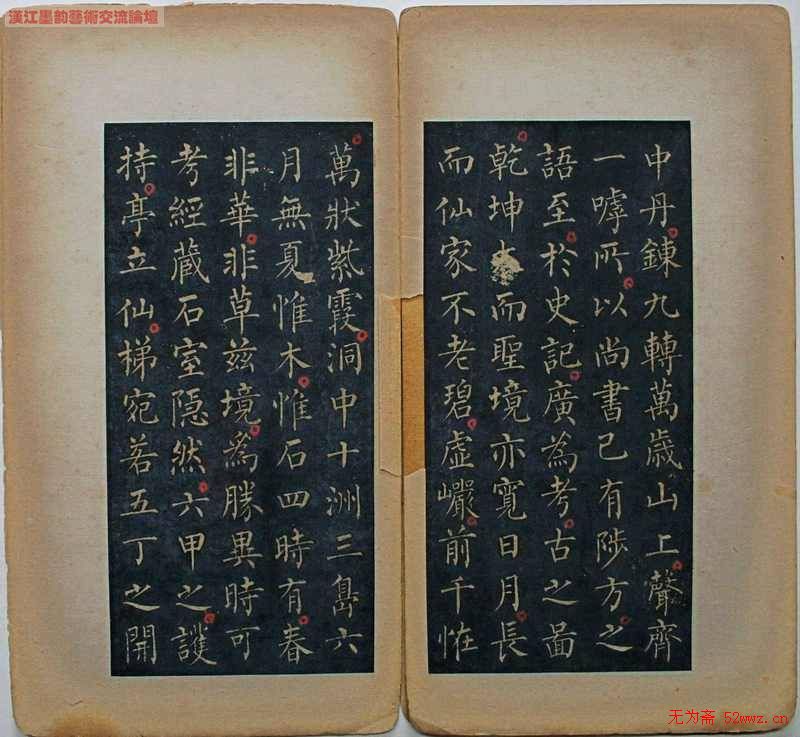 漢江墨韵藝術交流論壇
中丹錬九轉萬歲山上聲齊
一嘑所以尚書已有陟方之
語至於史記廣為考古之啚
乾坤而聖境亦寬日月長
而仙家不老碧虛巗前千恠
萬狀紫霞洞中十洲三島六
月無夏惟木惟石四時有春
非華非草兹境為勝異時可
考經蔵石室隠然六甲之護
持亭立仙梯宛若五丁之開
无为斋 52wwz.cn